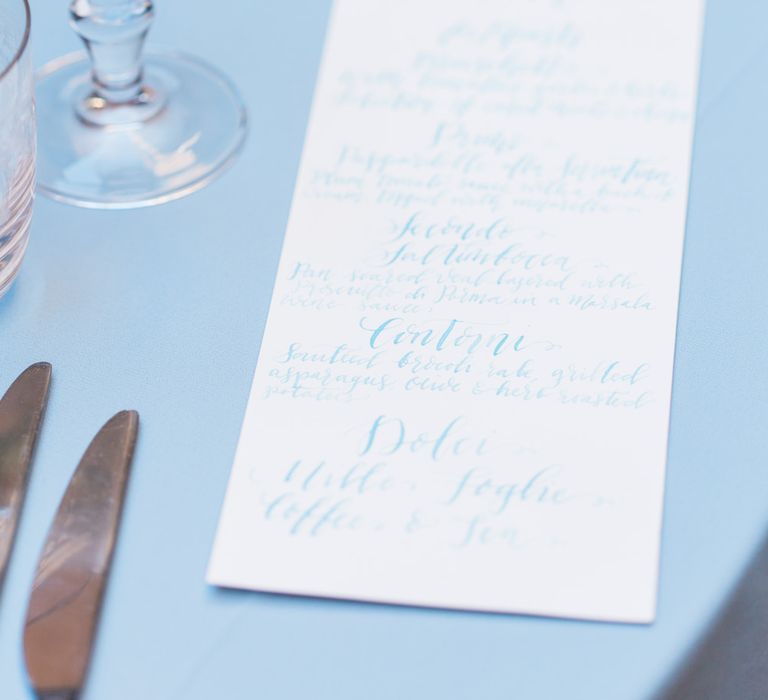 Antipasto
Primi
Pappardelle alla Sorrentina
Plum tomato sauce with a touch of
cream topped with mozzarella
Secondo
Saltimbocca
Pan seared veal layered with
Proscuitto di Parma in a Marsala
wine sauce
Contorni
Sauteed brocoli rabe, grilled
asparagus, olive & herb roasted
potatoes
Dolci
Mille Foglie
Coffee & Tea